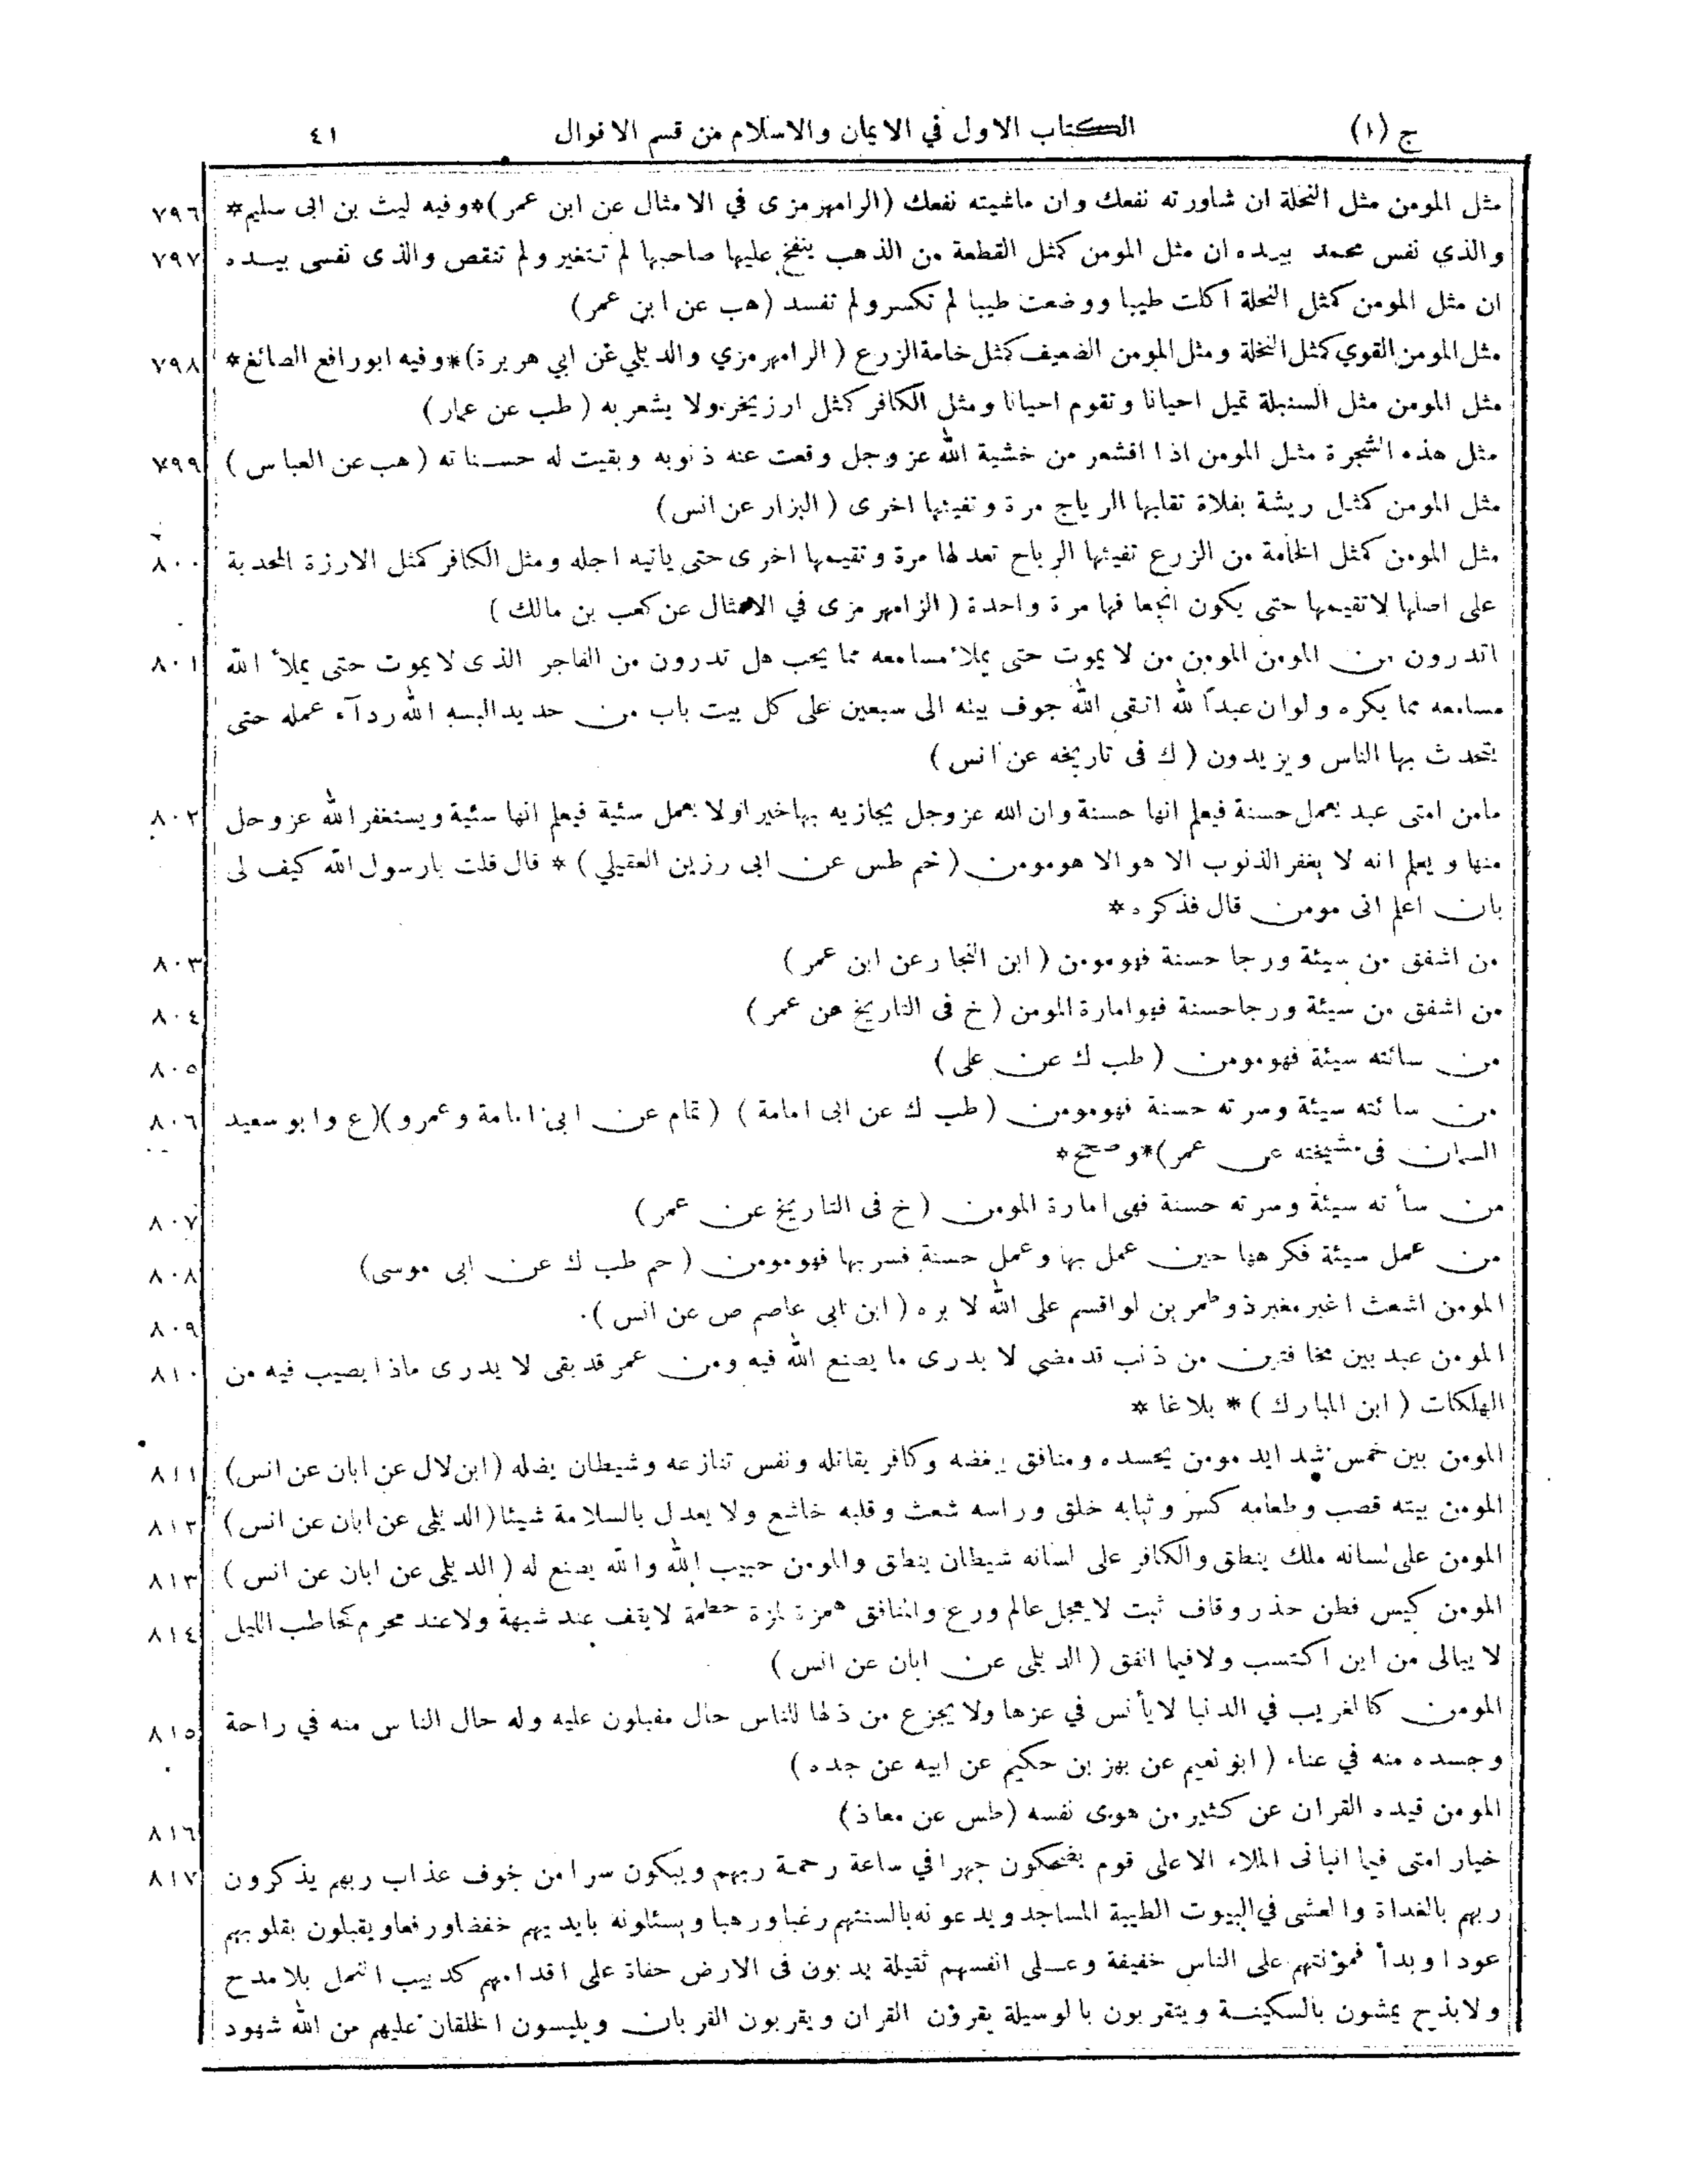 ج (١) الكتاب الاول في الايمان والاسلام من قسم الاقوال ٤١
مثل المومن مثل النحلة ان شاورته نفعك وان ماشيته نفعك (الرامهرمزى في الامثال عن ابن عمر)*وفيه ليث بن ابى سليم* ٧٩٦
والذي نفس محمد بيده ان مثل المومن كمثل القطعة من الذهب ينفخ عليها صاحبها لم تتغير ولم تنقص والذى نفسى بيده ٧٩٧
ان مثل المومن كمثل النحلة اكلت طيبا ووضعت طيبا لم تكسر ولم تفسد (هب عن ابن عمر)
مثل المومن القوي كمثل النخلة ومثل المومن الضعيف كمثل خامة الزرع (الرامهرمزي والديلي عن ابي هريرة)*وفيه ابورافع الصائغ* ٧٩٨
مثل المومن مثل السنبلة تميل احيانا وتقوم احيانا ومثل الكافر كمثل ارز يخر ولا يشعر به (طب عن عمار)
مثل هذه الشجرة مثل المومن اذا اقشعر من خشية الله عز وجل وقعت عنه ذنوبه وبقيت له حسناته (هب عن العباس) ٧٩٩
مثل المومن كمثل ريشة بفلاة تقلبها الرياح مرة وتفيئها اخرى (البزار عن انس)
مثل المومن كمثل الخامة من الزرع تفيئها الرياح تعدلها مرة وتقيمها اخرى حتى ياتيه اجله ومثل الكافر كمثل الارزة المجدبة ٨٠٠
على اصلها لا تقيمها حتى يكون انجعافها مرة واحدة (الرامهرمزى في الامثال عن كعب بن مالك)
اتدرون من المومن المومن من لا يموت حتى يملأ مسامعه مما يحب هل تدرون من الفاجر الذى لا يموت حتى يملأ الله ٨٠١
مسامعه مما يكره ولو ان عبداً لله اتقى الله جوف بيته الى سبعين على كل بيت باب من حديد البسه الله ردآء عمله حتى
يتحدث بها الناس ويزيدون (ك فى تاريخه عن انس)
مامن امتى عبد يعمل حسنة فيعلم انها حسنة وان الله عز وجل يجازيه بها خيرا ولا يعمل سئية فيعلم انها سئية ويستغفر الله عز وحل ٨٠٢
منها ويعلم انه لا يغفر الذنوب الا هو الا هو مومن (حم طس عن ابى رزين العقيلي) * قال قلت يارسول الله كيف لى
بان اعلم انى مومن قال فذكره*
من اشفق من سيئة ورجا حسنة فهو مومن (ابن النجار عن ابن عمر) ٨٠٣
من اشفق من سيئة ورجا حسنة فهو امارة المومن (خ فى التاريخ عن عمر) ٨٠٤
من سائته سيئة فهو مومن (طب ك عن على) ٨٠٥
من سائته سيئة وسرته حسنة فهو مومن (طب ك عن ابى امامة) (تمام عن ابى امامة وعمرو)(ع وابو سعيد ٨٠٦
السمان فى مشيخته عن عمر)*وصحح*
من سأته سيئة وسرته حسنة فهى امارة المومن (خ فى التاريخ عن عمر) ٨٠٧
من عمل سيئة فكرهها حين عمل بها وعمل حسنة فسر بها فهو مومن (حم طب ك عن ابى موسى) ٨٠٨
المومن اشعث اغبر مغبر ذو طمرين لو اقسم على الله لابره (ابن ابى عاصم ص عن انس). ٨٠٩
المومن عبد بين مخافتين من ذنب قد مضى لا يدرى ما يصنع الله فيه ومن عمر قد بقى لا يدرى ماذا يصيب فيه من ٨١٠
الهلكات (ابن المبارك)* بلاغا *
المومن بين خمس شدايد مومن يحسده ومنافق يبغضه وكافر يقاتله ونفس تنازعه وشيطان يضله (ابن لال عن ابان عن انس) ٨١١
المومن بيته قصب وطعامه كسر وثيابه خلق وراسه شعث وقلبه خاشع ولا يعدل بالسلامة شيئا (الديلى عن ابان عن انس) ٨١٣
المومن على لسانه ملك ينطق والكافر على لسانه شيطان ينطق والمومن حبيب الله والله يصنع له (الديلى عن ابان عن انس) ٨١٣
المومن كيس فطن حذر وقاف ثبت لا يعجل عالم ورع والمنافق همزة لمزة حطمة لا يقف عند شبهة ولا عند محرم كحاطب الليل ٨١٤
لا يبالى من اين اكتسب ولا فيما انفق (الديلى عن ابان عن انس)
المومن كالغريب في الدنيا لا يأنس في عزها ولا يجزع من ذلها للناس حال مقبلون عليه وله حال الناس منه في راحة ٨١٥
وجسده منه في عناء (ابو نعيم عن بهز بن حكيم عن ابيه عن جده)
المومن قيده القران عن كثير من هوى نفسه (طس عن معاذ) ٨١٦
خيار امتى فيما انبانى الملاء الاعلى قوم يضحكون جهرا في ساعة رحمة ربهم ويبكون سرا من خوف عذاب ربهم يذكرون ٨١٧
ربهم بالغداة والعشى في البيوت الطيبة المساجد ويدعونه بالسنتهم رغبا ورهبا ويسئلونه بايديهم خفضا ورفعا ويقبلون بقلوبهم
عودا وبدأ فمؤنتهم على الناس خفيفة وعلى انفسهم ثقيلة يدبون فى الارض حفاة على اقدامهم كدبيب النمل بلا مدح
ولا بذح يمشون بالسكينة ويتقربون بالوسيلة يقرؤن القران ويقربون القربان ويلبسون الخلقان عليهم من الله شهود